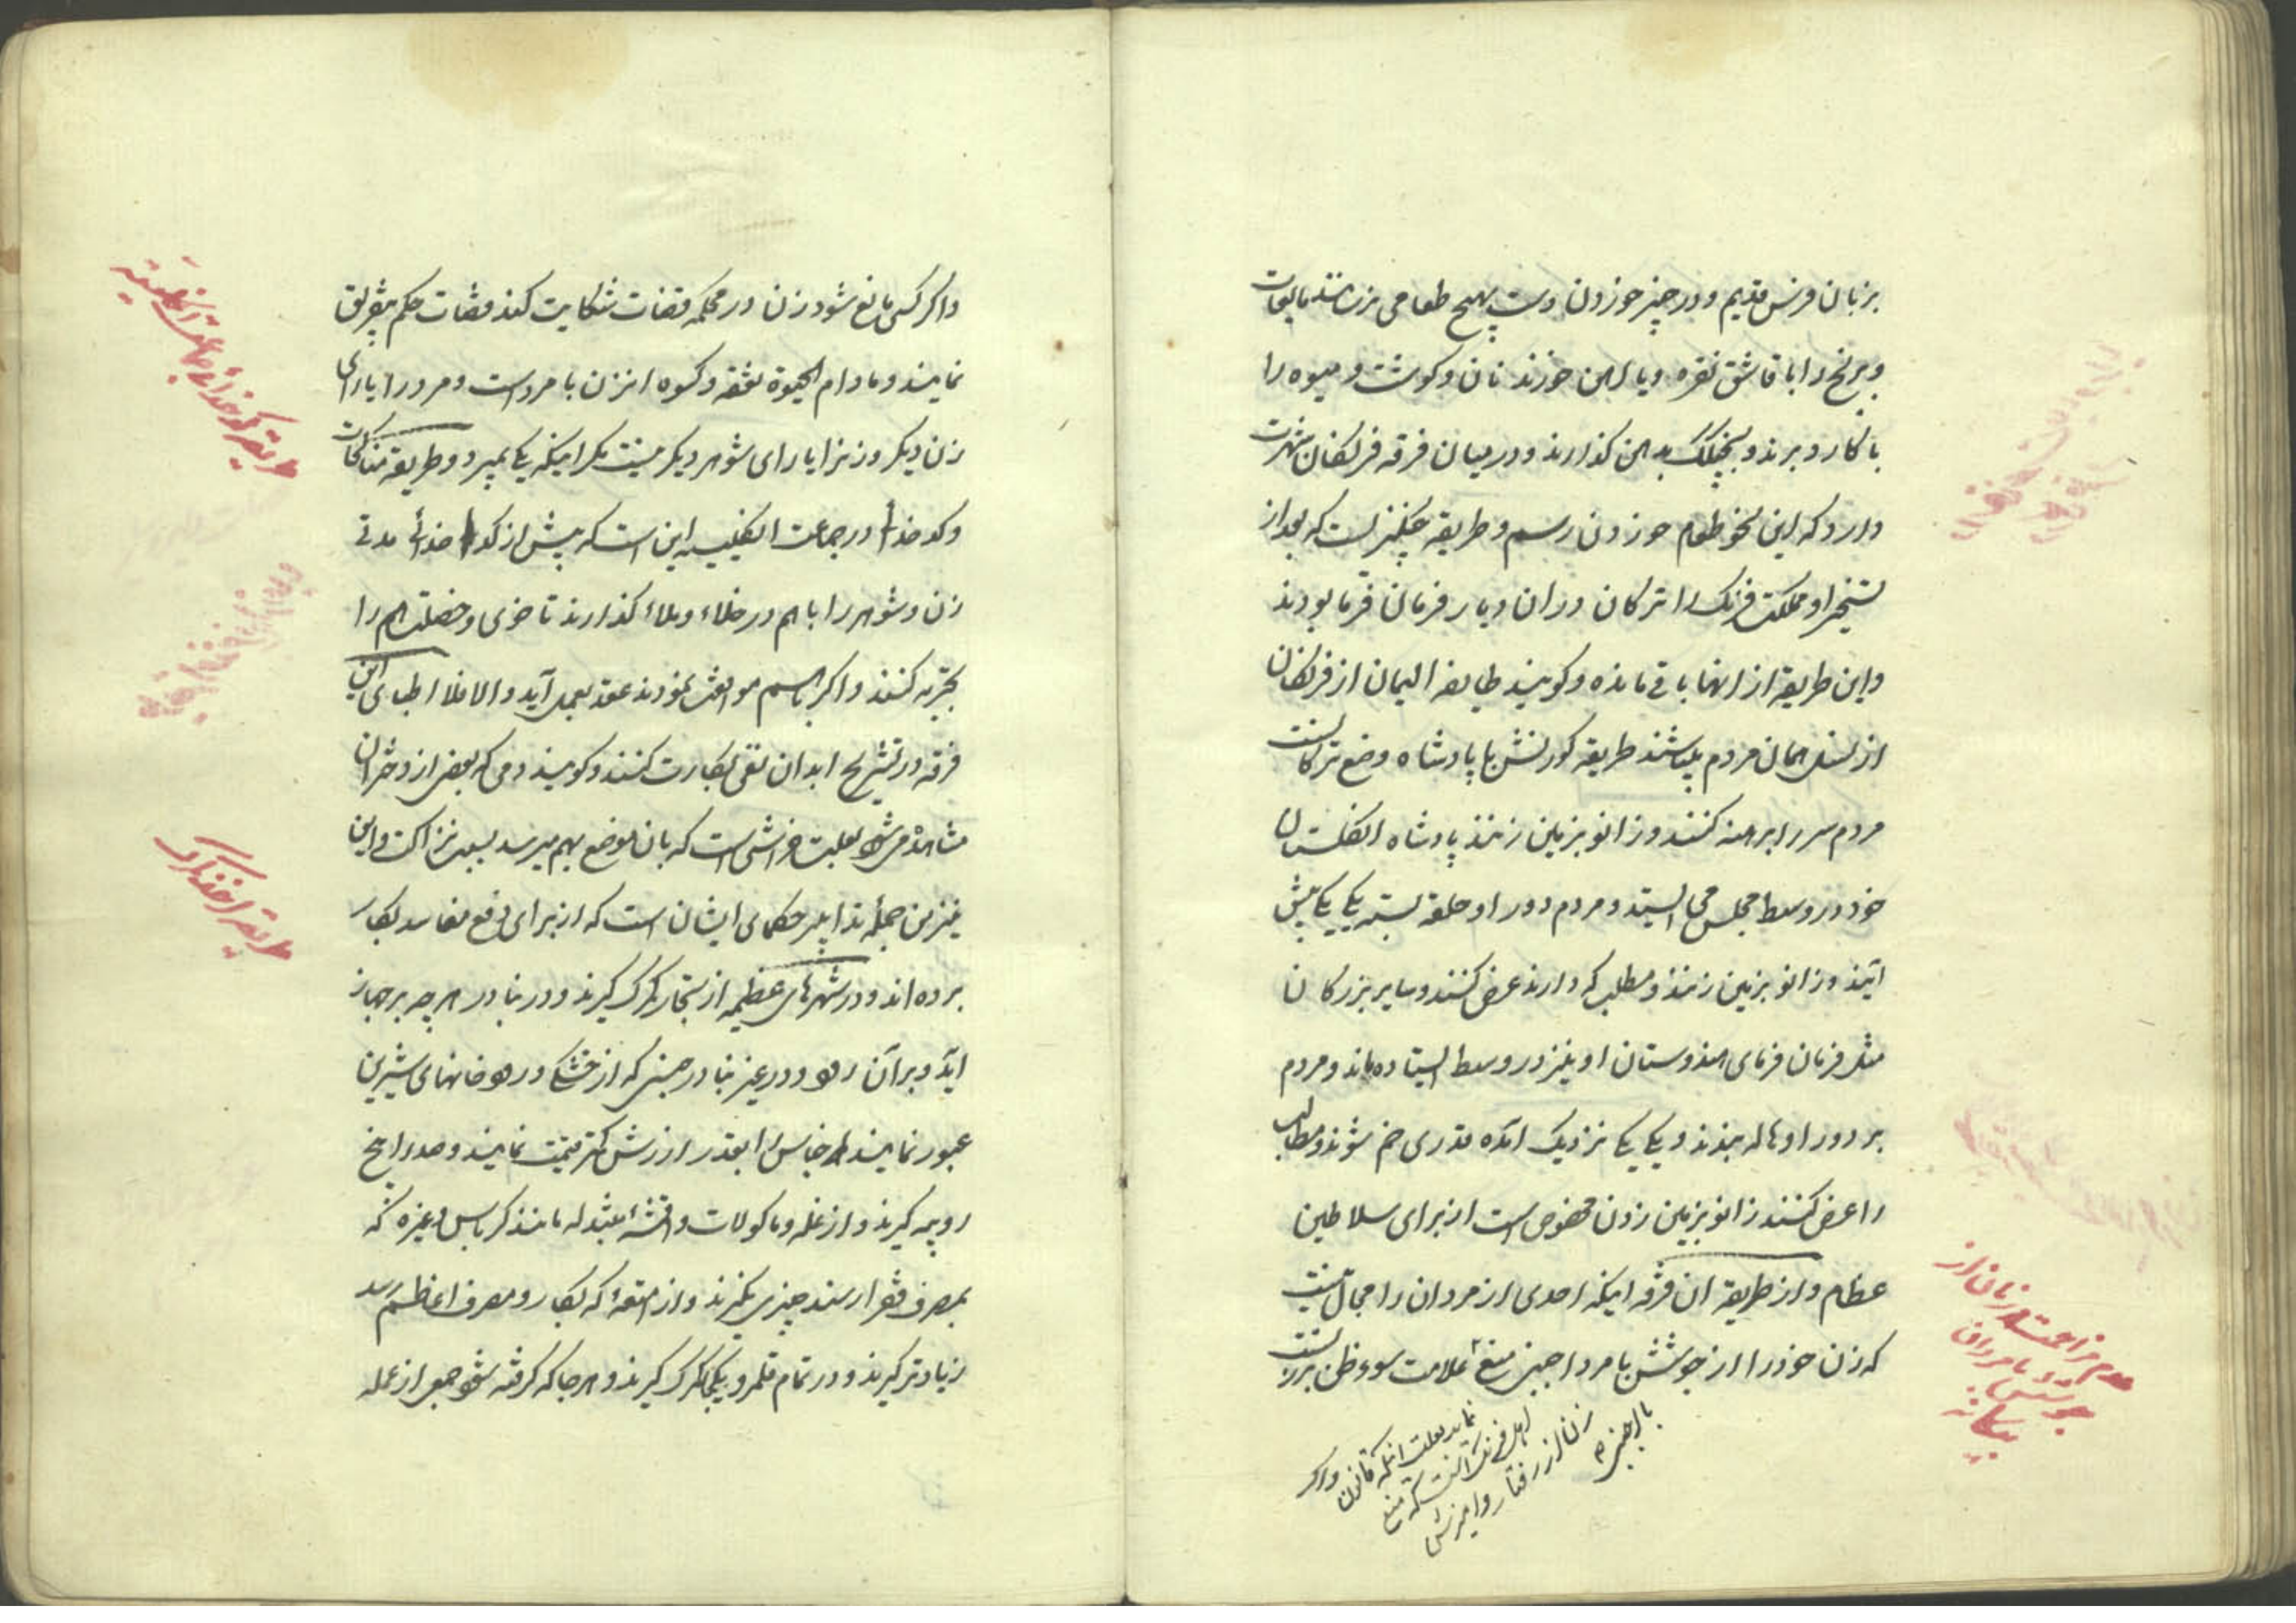 بزبان فرنس قدیم و در چیز خوردن دست بهیچ طعامی نزنند مایعات
و برنج را با قاشق نقره و یا آهن خورند نان و کوشت و میوه را
با کارد برند و بچنکک بدهن کذارند و در میان فرقه فرنکان شهرت
دارد که این نحو طعام خوردن رسم و طریقه چنکیز است که بعد از
تسخیر او مملکت فرنک را ترکان دران دیار فرمان فرما بودند
و این طریقه از انها باقی مانده و کویند طایفه الیمان از فرنکان
از نسل همان مردم باشند طریقه کورنش با پادشاه وضع ترکانست
مردم سر را برهنه کنند و زانو بزمین زنند پادشاه انکلستان
خود در وسط مجلس می ایستد و مردم دور او حلقه بسته یکی یکی پیش
آیند و زانو بزمین زنند و مطلب که دارند عرض کنند و سایر بزرکان
مثل فرمان فرمای هندوستان او نیز در وسط ایستاده ماند و مردم
بر دور او هاله بندند و یکی یکی نزدیک آمده قدری خم شوند و مطالب
را عرض کنند زانو بزمین زدن مخصوص است از برای سلاطین
عظام و از طریقه ان فرقه اینکه احدی از مردان را مجال نیست
که زن خود را از جوشش با مرد اجنبی منع علامت سوء ظن بزنست
با اجنبی
زنان از رفتار و آمیزش
اهل فرنک آنست که منع
نماید بعلت انکه قانون
و اکر
عدم مزاحمت زنان از
جوشش با مردان
بیکانه
و اکر کسی مانع شود زن در محکمه قضات شکایت کند قضات حکم بتفریق
نمایند و مادام الحیوة نفقه و کسوه انزن با مرد است و مرد را یارای
زن دیکر و زنرا یارای شوهر دیکر نیست مکر اینکه یکی بمیرد و طریقه مناکحات
و کدخدائی در جماعت انکلیسیه این است که پیش از کدخدائی مدتی
زن و شوهر را باهم در خلاء و ملاء کذارند تا خوی و خصلت هم را
تجربه کنند و اکر باهم موافقت نمودند عقد بعمل آید و الا فلا اطبای این
فرقه در تشریح ابدان نفی بکارت کنند و کویند دمی که بعضی از دختران
مشاهده میشود بعلت خراشی است که بان موضع بهم میرسد بسبب نزاکت و این
نیز من جمله تدابیر حکمای ایشان است که از برای دفع مفاسد بکار
برده اند و در شهرهای عظیمه از تجار کمرک کیرند و در بنادر هرچه بر جهاز
آید و بر آن رود و در غیر بنادر جنسی که از خشکی و رودخانهای شیرین
عبور نمایند اجناس را بقدر ارزش کمتر قیمت نمایند و صد را پنج
روپیه کیرند و از غله و ماکولات و اقمشه مبتذله مانند کرباس و غیره که
بمصرف فقرا رسند چیزی نکیرند و از امتعه که بکار و مصرف اعاظم رسد
زیادتر کیرند و در تمام قلمرو یکجا کمرک کیرند و هرجا که کرفته شود جمعی از عمله
طریقه کدخدائی جماعت انکلیسیه
طریقه اخذ کمرک